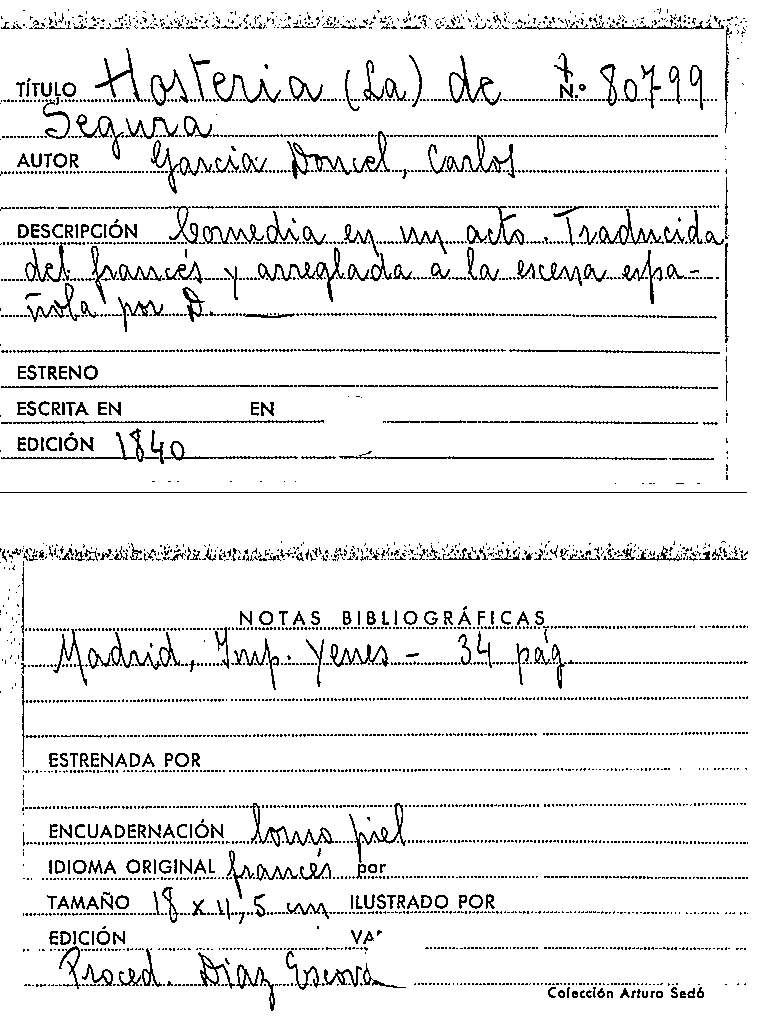 TÍTULO Hosteria (La) de N.º 80799
Segura
AUTOR Garcia Doncel, Carlos
DESCRIPCIÓN Comedia en un acto. Traducida
del francés y arreglada a la escena espa-
ñola por D. —
ESTRENO
ESCRITA EN EN
EDICIÓN 1840
NOTAS BIBLIOGRÁFICAS
Madrid, Imp. Yenes - 34 pág.
ESTRENADA POR
ENCUADERNACIÓN lomo piel
IDIOMA ORIGINAL francés por
TAMAÑO 18 x 11,5 cm ILUSTRADO POR
EDICIÓN
Proced. Diaz Escova
Colección Arturo Sedó